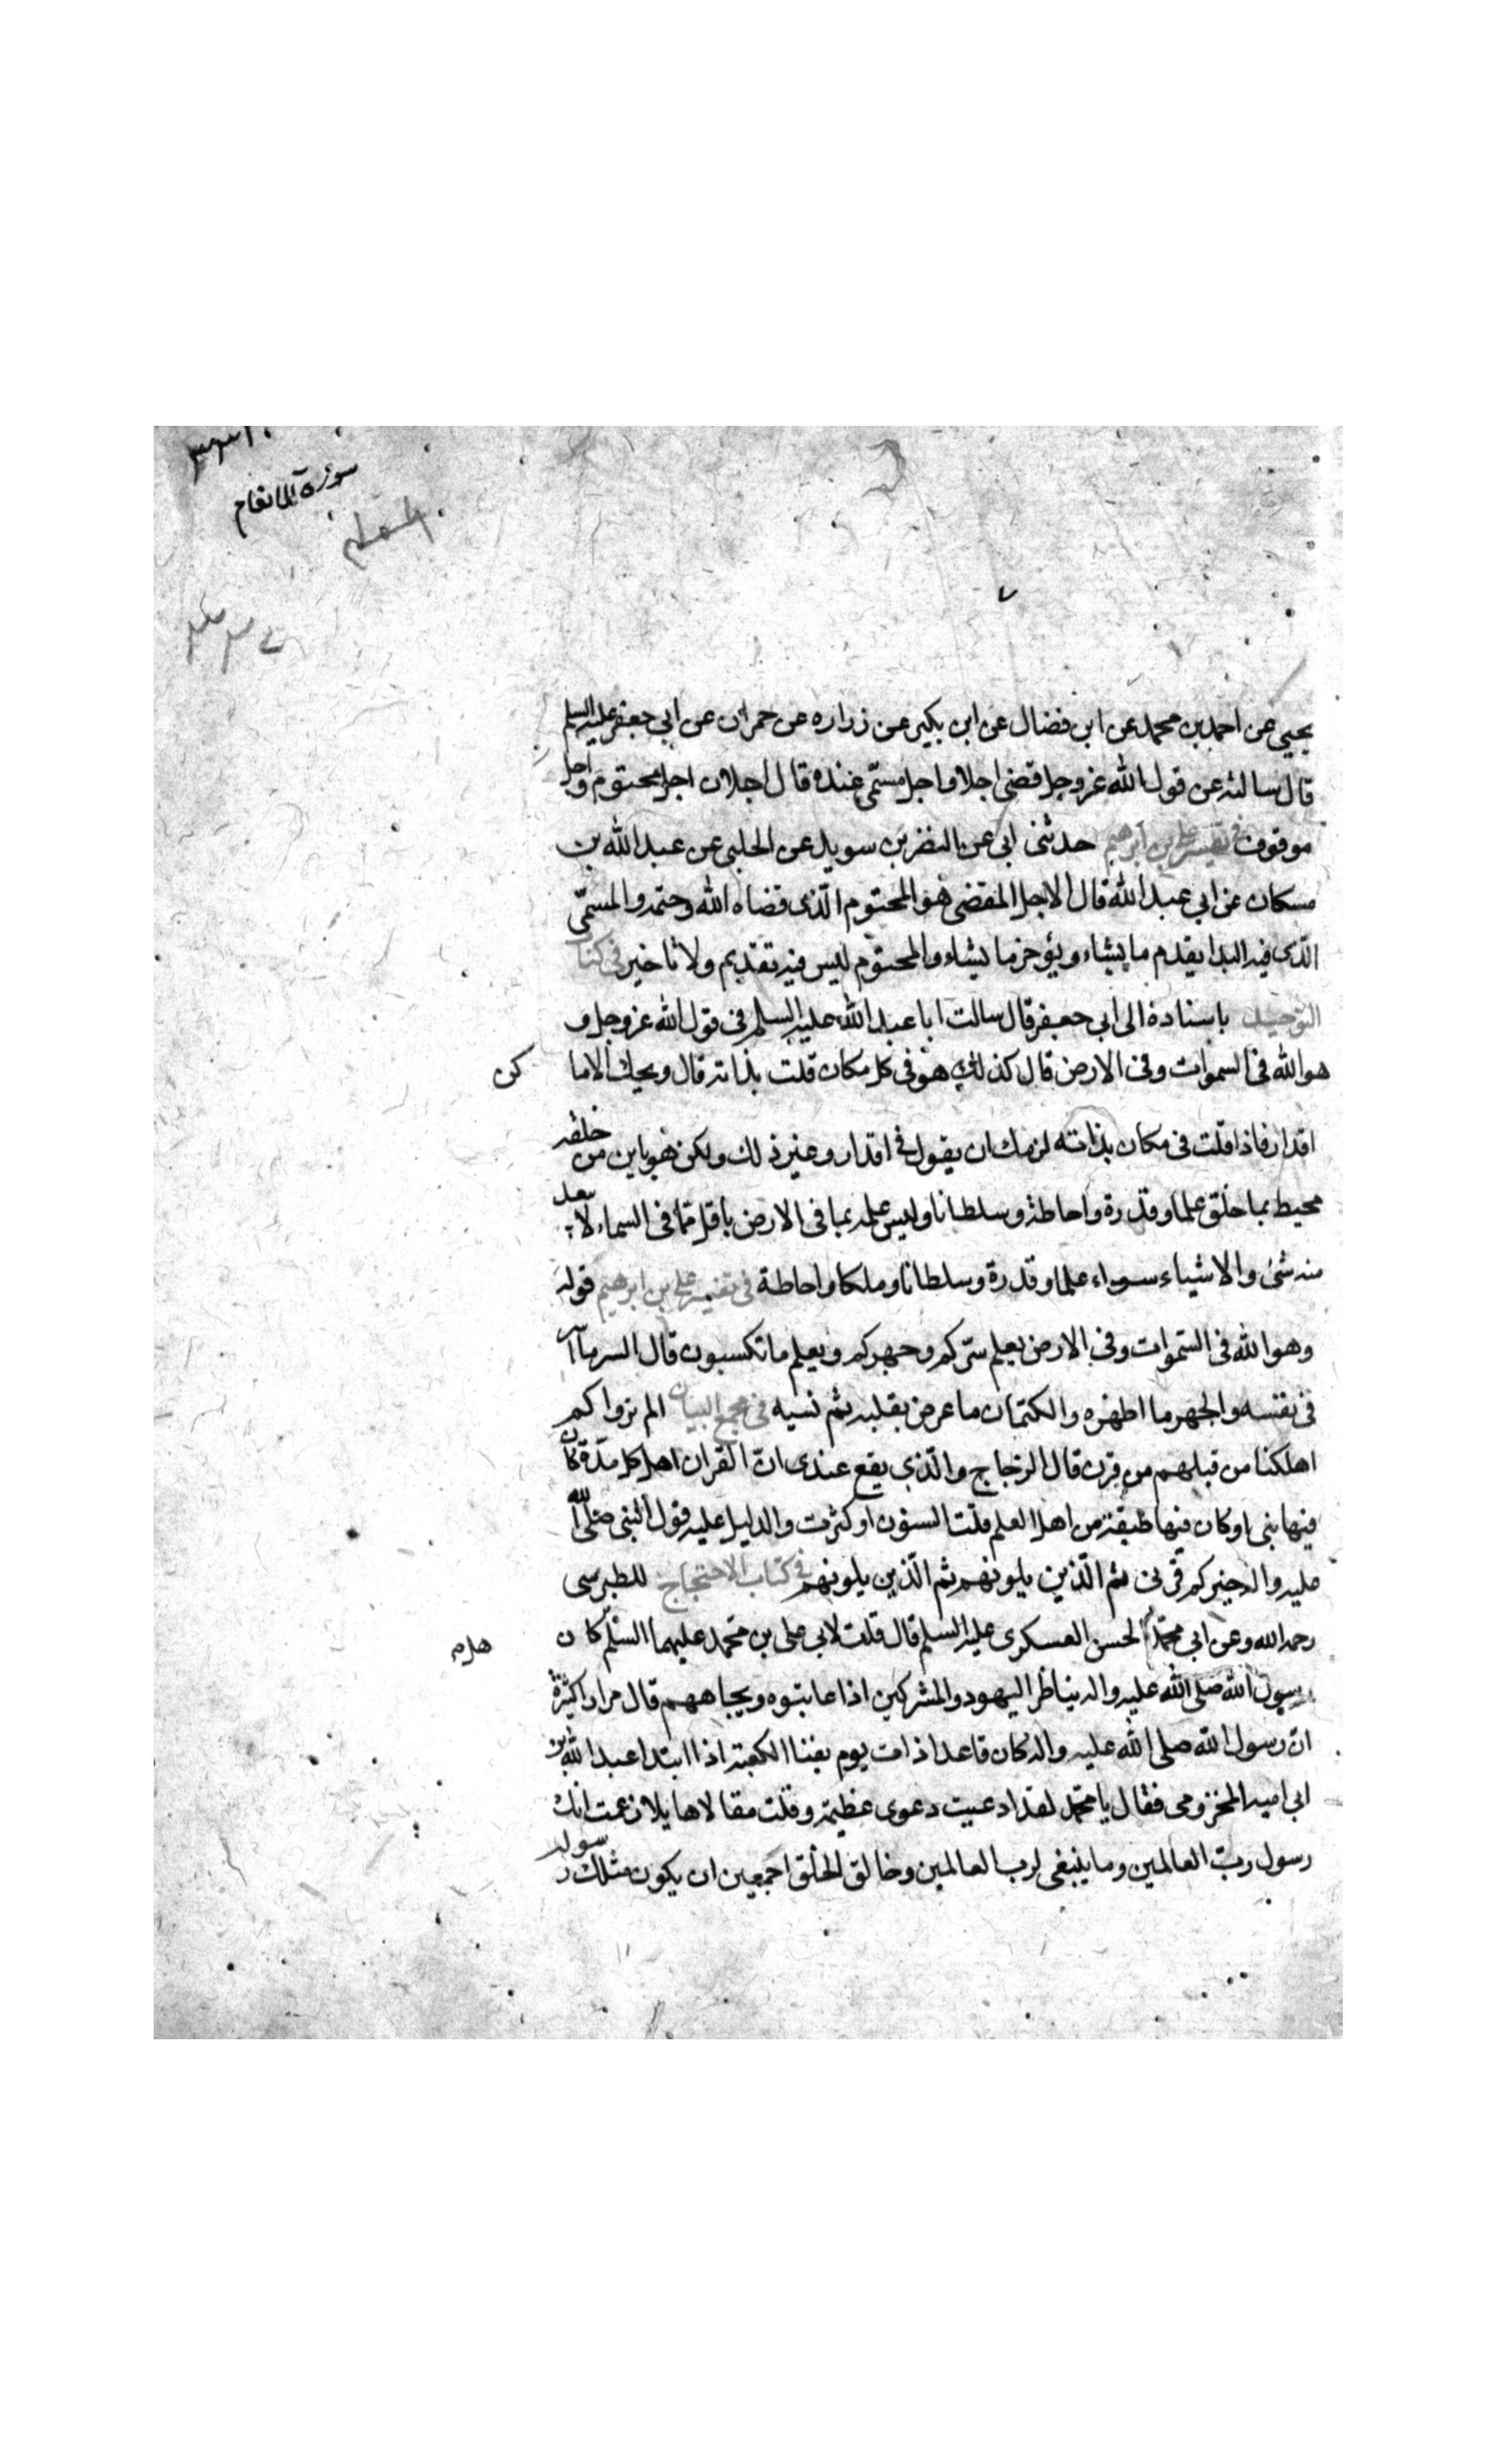 سورة الانعام
يحيى عن احمد بن محمد عن ابن فضال عن ابن بكير عن زراره عن حمران عن ابي جعفر عليه السلم
قال سالته عن قول الله عز وجل قضى اجلا واجل مسمّى عنده قال اجلان اجل محتوم واجل
موقوف في تفسير علي بن ابرهيم حدثنى ابي عن النضر بن سويد عن الحلبي عن عبد الله بن
مسكان عن ابي عبد الله قال الاجل المقضى هو المحتوم الّذى قضاه الله وحتمه والمسمّى
الّذى فيه البدا يقدم ما يشاء ويؤخر ما يشاء والمحتوم ليس فيه تقديم ولا تاخير في كتاب
التوحيد باسناده الى ابي جعفر قال سالت ابا عبد الله عليه السلم فى قول الله عز وجل و
هو الله فى السموات وفى الارض قال كذلك هو فى كل مكان قلت بذاته قال ويحك الاما
كن
اقدار فاذا قلت فى مكان بذاته لزمك ان يقول فى اقدار وغير ذلك ولكن هو باين من خلقه
محيط بما خلق علما وقدرة واحاطة وسلطانا وليس علمه بما فى الارض باقل ممّا فى السماء لا يبعد
منه شئ والاشياء سواء علما وقدرة وسلطانا وملكا واحاطة فى تفسير على بن ابرهيم قوله
وهو الله فى السّموات وفى الارض يعلم سرّكم وجهركم ويعلم ما تكسبون قال السر ما اسر
فى نفسه والجهر ما اظهره والكتمان ما عرض بقلبه ثم نسيه فى مجمع البيان الم يروا كم
اهلكنا من قبلهم من قرن قال الزجاج والّذى يقع عندى انّ القران اهل كل مدّة كان
فيها نبى او كان فيها طبقة من اهل العلم قلت السنون او كثرت والدليل عليه قول النبى صلى الله
عليه واله خيركم قرنى ثم الّذين يلونهم ثم الّذين يلونهم فى كتاب الاحتجاج للطبرسى
رحمه الله وعن ابي محمّد الحسن العسكرى عليه السلم قال قلت لابي على بن محمد عليهما السّلم كان
رسول الله صلى الله عليه واله يناظر اليهود والمشركين اذا عاتبوه ويحاجهم قال مرارا كثيرة
انّ رسول الله صلى الله عليه واله كان قاعدا ذات يوم بفنا الكعبة اذا ابتدا عبد الله بن
ابي اميه المخزومى فقال يا محمّد لقد ادعيت دعوى عظيمة وقلت مقالا هايلا زعمت انك
رسول ربّ العالمين وما ينبغى لرب العالمين وخالق الخلق اجمعين ان يكون مثلك رسوله